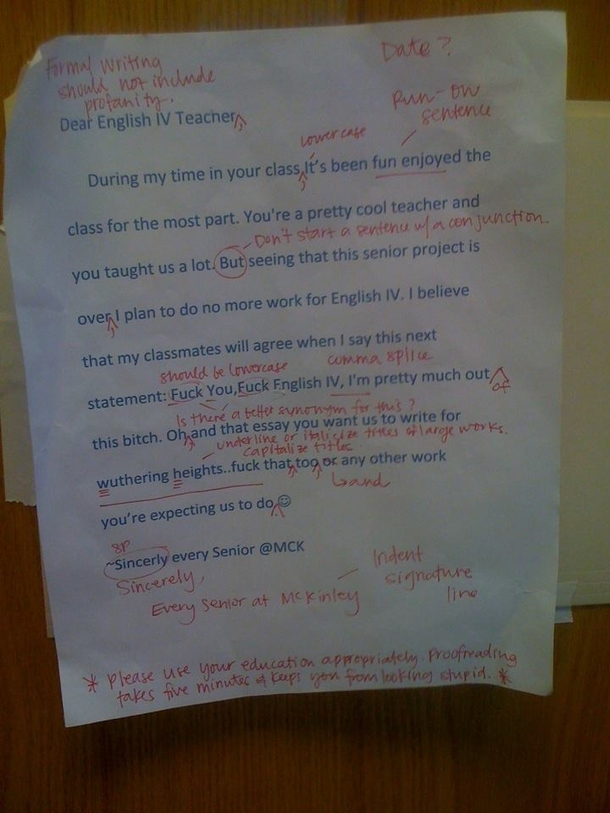 Formal Writing
should not include
profanity.
Date?
Run-on
sentence
Dear English IV Teacher,
lowercase
During my time in your class,It's been fun enjoyed the
class for the most part. You're a pretty cool teacher and
Don't start a sentence w/ a conjunction.
you taught us a lot. But seeing that this senior project is
over, I plan to do no more work for English IV. I believe
that my classmates will agree when I say this next
should be lowercase
comma splice
statement: Fuck You,Fuck English IV, I'm pretty much out
of
Is there a better synonym for this?
this bitch. Oh, and that essay you want us to write for
underline or italicize titles of large works.
capitalize titles
wuthering heights..fuck that, too, or any other work
and
you're expecting us to do. ☺
sp
~Sincerly every Senior @MCK
Sincerely,
Every senior at McKinley
Indent
signature
line
* Please use your education appropriately. Proofreading
takes five minutes & keeps you from looking stupid. *